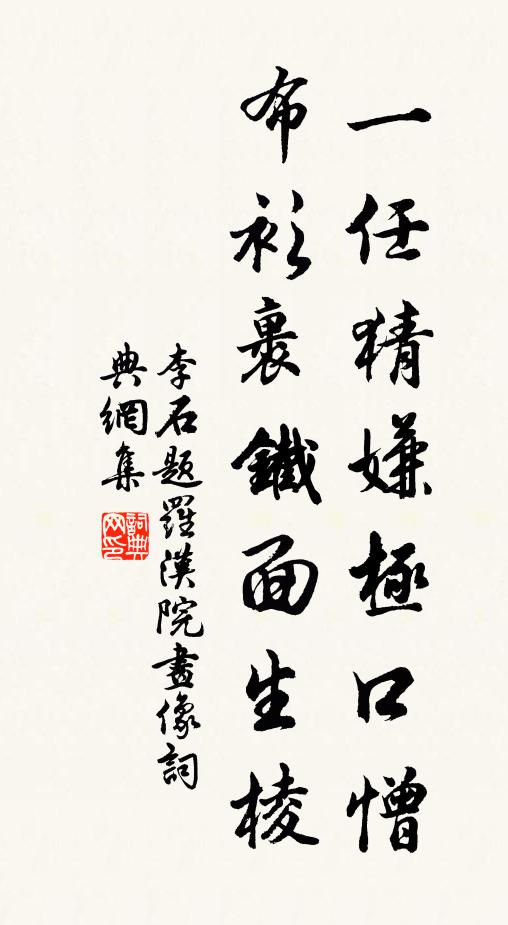 一任猜嫌極口憎
布衫裹鐵面生棱
李石題羅漢院畫像詞
典網集
詞典網印